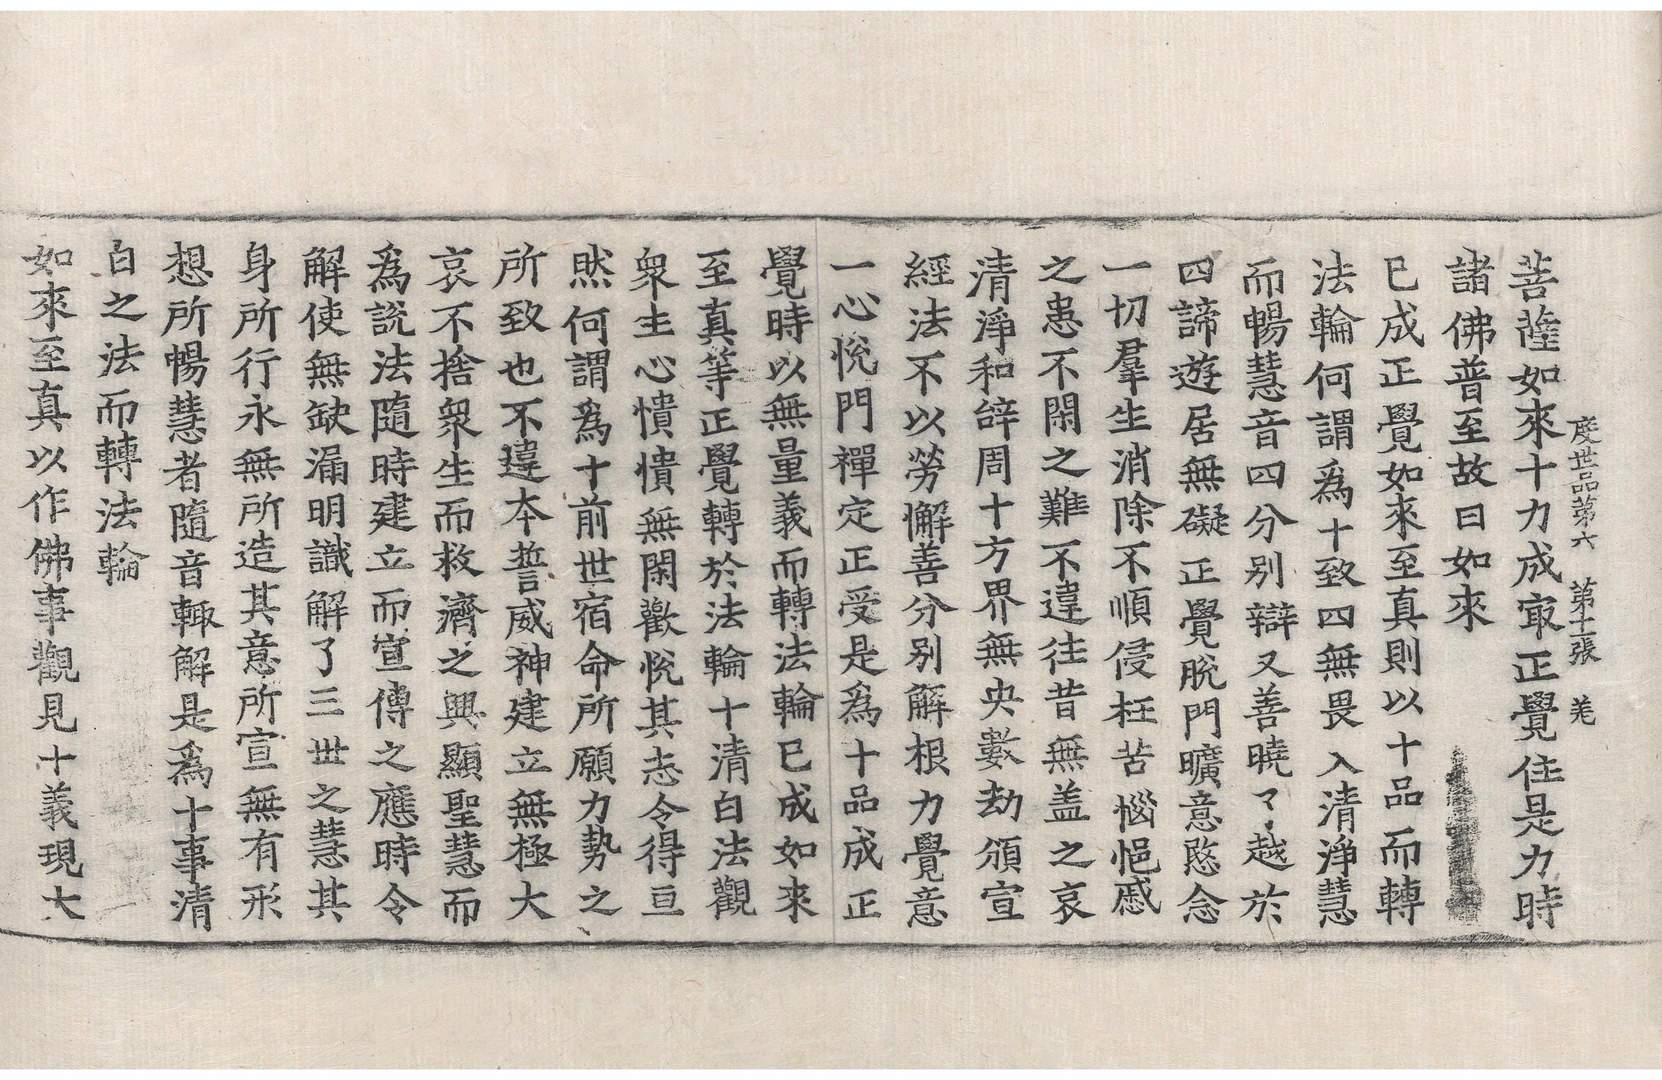 度世品第六　第十二張　羌
菩薩如來十力成㝡正覺住是力時
諸佛普至故曰如來
已成正覺如來至真則以十品而轉
法輪何謂爲十致四無畏入清淨慧
而暢慧音四分別辯又善曉了越於
四諦遊居無礙正覺脫門曠意愍念
一切羣生消除不順侵枉苦惱悒慼
之患不閑之難不違往昔無盖之哀
清淨和辝周十方界無央數劫頒宣
經法不以勞懈善分別解根力覺意
一心悅門禪定正受是爲十品成正
覺時以無量義而轉法輪已成如來
至真等正覺轉於法輪十清白法觀
衆生心憒憒無閑歡悅其志令得亘
然何謂爲十前世宿命所願力勢之
所致也不違本誓威神建立無極大
哀不捨衆生而救濟之興顯聖慧而
爲說法隨時建立而宣傳之應時令
解使無缺漏明識解了三世之慧其
身所行永無所造其意所宣無有形
想所暢慧者隨音輙解是爲十事清
白之法而轉法輪
如來至真以作佛事觀見十義現大